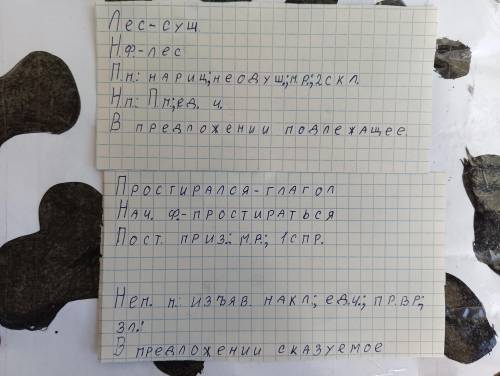 Лес-сущ.
Н.ф-лес
П.п: нариц;неодуш.;м.р;2скл.
Н.п: П.п;ед. ч.
В предложении подлежащее.
Простирался-глагол
Нач. ф-простираться
Пост. приз.: м.р.; 1спр.
Неп. п: изъяв. накл.; ед.ч.; пр.вр;
3л.:
В предложении сказуемое